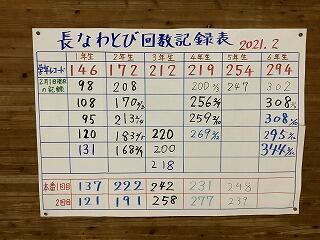 長なわとび回数記録表 2021.2
1年生 2年生 3年生 4年生 5年生 6年生
学年レコード 146 172 212 219 254 294
2月1日現在の記録 98 208 200 247 302
108 170 256 308
95 213 259 308
120 183 220 269 295
131 168 200 344
218
本番1回目 137 222 242 231 298
2回目 121 191 258 277 239